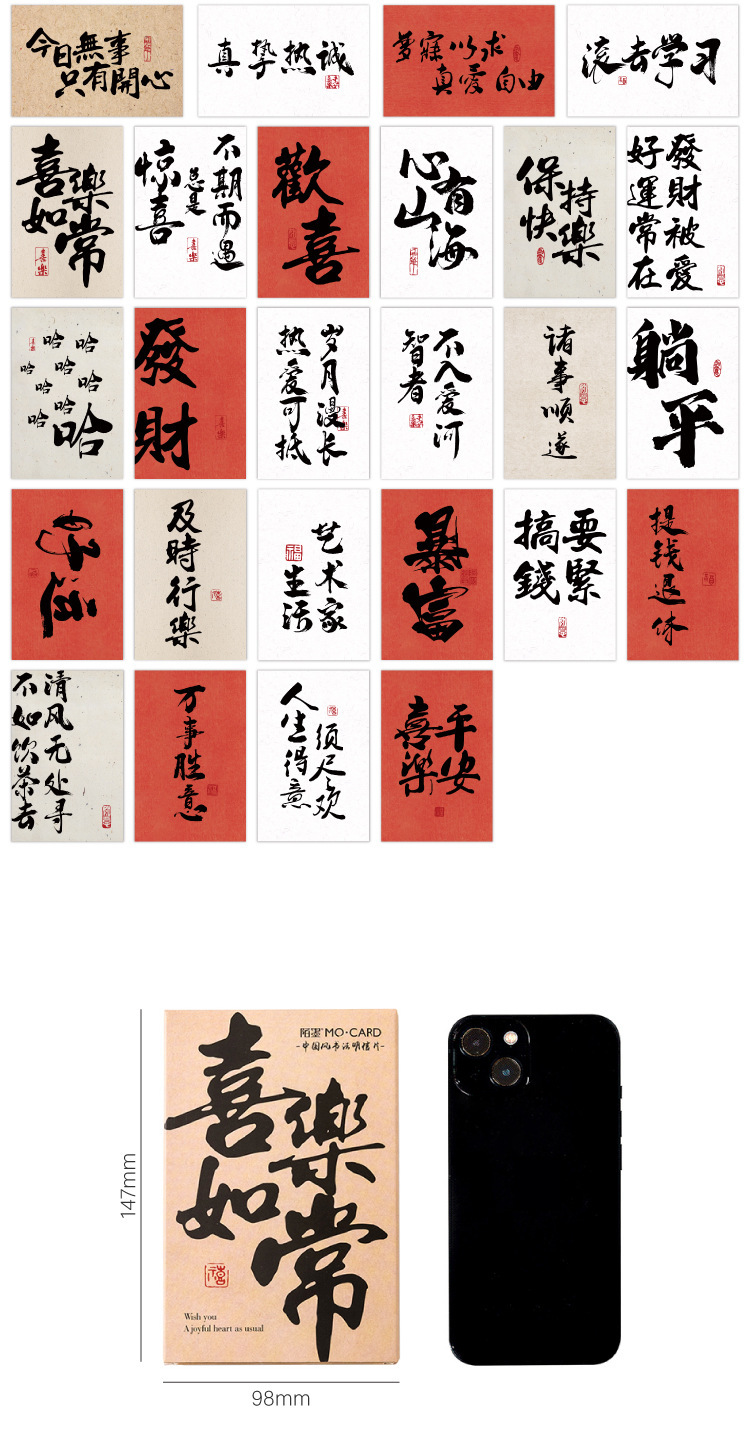 今日無事
只有開心
真挚热诚
梦寐以求
真愛自由
滚去学习
喜樂
如常
喜樂
不期而遇
总是
惊喜
喜樂
歡
喜
心有
山海
保持
快樂
發財被愛
好運常在
哈哈
哈哈
哈哈
哈
哈
哈
喜樂
發
財
喜樂
岁月漫长
热爱可抵
不入爱河
智者
诸事顺遂
躺
平
及時行樂
艺术家
生活
福
暴
富
要緊
搞錢
提钱退休
清风无处寻
不如饮茶去
万事胜意
人生得意
须尽欢
平安
喜樂
陌墨 MO·CARD
-中国风书法明信片-
喜樂
如常
禧
Wish you
A joyful heart as usual
147mm
98mm